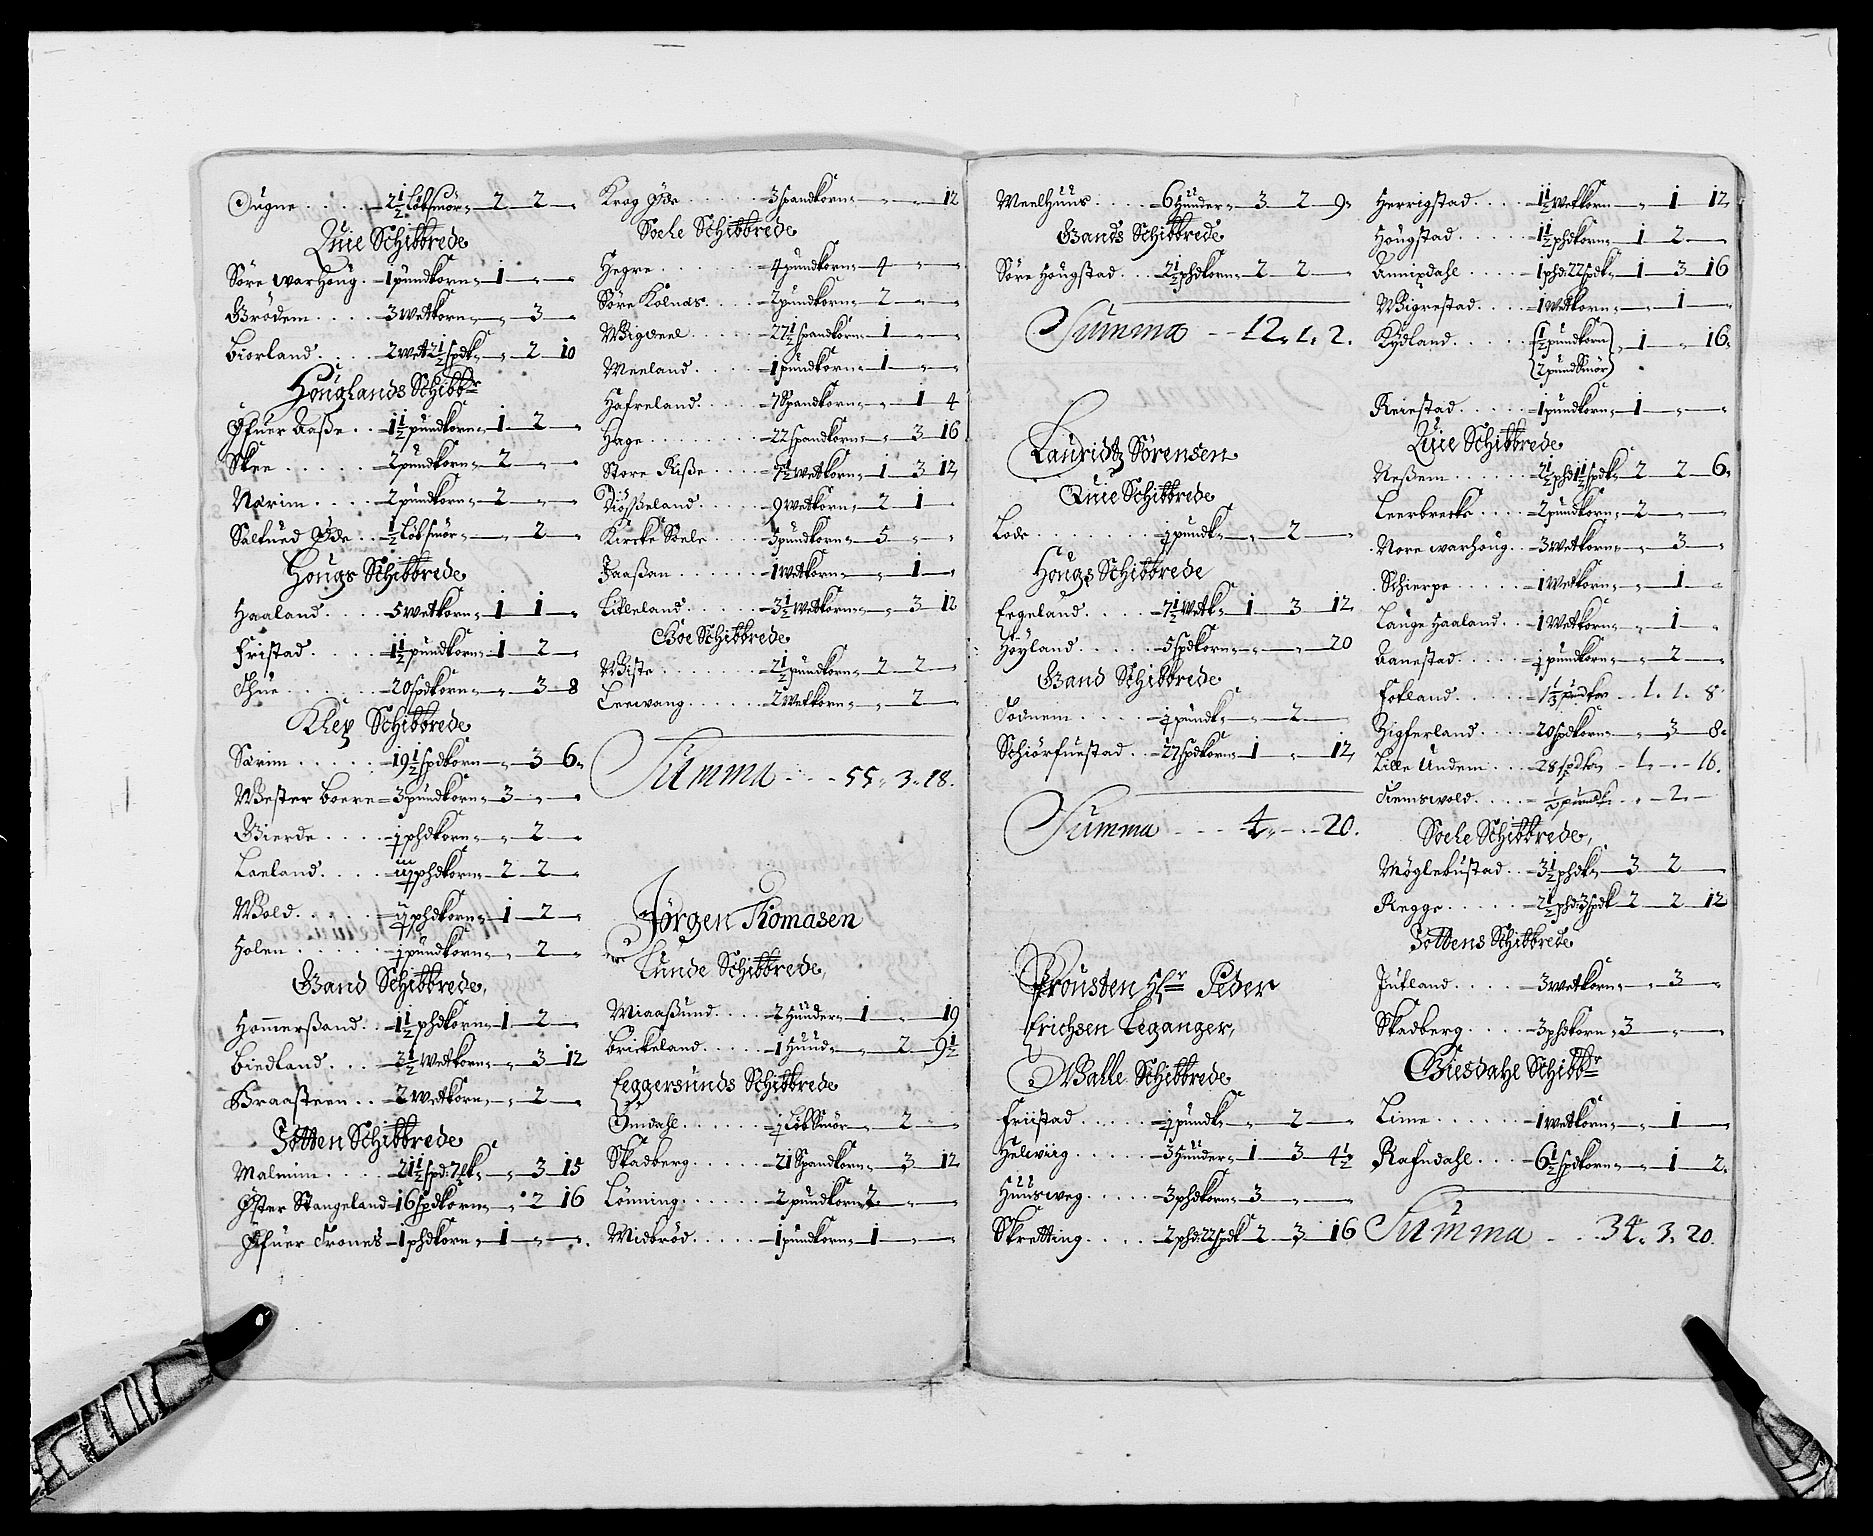 Tugne..... 2½ Löbsmör" 2 2 "
Quie Schibbrede
Söre warhoug.. 1 pundkorn" 1 " "
Brödem.... 3 wetkorn" " 3 "
Biorland.... 2 wet 2½ spdk" " 2 10
Houglands Schibbr
Øfuer Aasse.. 1½ pundkorn" 1 2 "
Skee...... 2 pundkorn" 2 " "
Narim.... 2 pundkorn" 2 " "
Saltued Øde.. ½ Löbsmör" " 2 "
Hougs Schibbrede
Haaland.... 5 wetkorn" 1 1 "
Fristad..... 1½ pundkorn" 1 2 "
Thue...... 20 spdkorn" " 3 8
Klep Schibbrede
Sarim..... 19½ spdkorn" " 3 6"
Wester Boere 3 pundkorn" 3 " "
Gierde.... ½ phdkorn" " 2 "
Laeland.... phdkorn" 2 2 "
Wold..... phdkorn" 1 2 "
Holen..... ½ pundkorn" " 2 "
Gand Schibbrede,
Hommersand.. 1½ phdkorn" 1 2 "
Biedland... 3½ wetkorn" " 3 12
Braasteen.. 2 wetkorn" " 2 "
Jotten Schibbrede
Malmim.... 21½ spd: k" " 3 15
Øster Stangeland 16 spdkorn" " 2 16
Øfuer Trones 1 phdkorn" 1 " "
Krog Øde..... 3 spandkorn" " " 12
Soele Schibbrede
Hegre....... 4 pundkorn" 4 " "
Söre Kolnes.... 2 pundkorn" 2 " "
Wigdeel...... 27½ spandkorn" 1 " "
Meeland..... 1 pundkorn" 1 " "
Hafreland..... 7 Spandkorn" " 1 4
Hage....... 22 spandkorn" " 3 16
Store Risse.... 7½ wetkorn" 1 3 12
Diösseland..... 9 wetkorn" 2 1 "
Kircke Soele.... 5 pundkorn" 5 " "
Jaassan...... 1 wetkorn" " 1 "
Lilleland..... 3½ wetkorn" " 3 12
Goe Schibbrede
Wiste...... 2½ pundkorn" 2 2 "
Leewang..... 2 wetkorn" " 2 "
Summa - - - 55" 3" 18.
Jörgen Thomasen
Lunde Schibbrede,
Miaassund.... 2 Hunder" 1 " 19
Brickeland..... 1 Huud" " 2 9½
Eeggersunds Schibbrede
Omdahl...... ½ Löb Smör" 2 "
Skadberg..... 21 Spandkorn" 3 12
Lönning...... 2 pundkorn" 2 " "
Midbröd...... 1 pundkorn" 1 " "
Meelhuus.... 6 Hunder" 3 2 9"
Gands Schibbrede
Söre Hougstad.. 2½ phdkorn" 2 2 "
Summa - - 12" 1" 2.
Lauridtz Sörensen
Quie Schibbrede
Lode....... ½ pundk" " 2 "
Hougs Schibbrede
Eegeland..... 7½ wetk" 1 3 12
Höyland..... 5 spdkorn" " " 20
Gand Schibbrede
Sodnem..... ½ pundk" " 2 "
Schiörfuestad.. 27 spdkorn" 1 " 12
Summa - - - 4" - - 20.
Prousten Hr Peder
Erichsen Leganger,
Walle Schibbrede
Friistad..... ½ pundk" " 2 "
Helwiig..... 3 Hunder" 1 3 4½
Huusweg..... 3 phdkorn" 3 " "
Skretting.... 2 phd: 22 spdk 2 3 16
Herrigstad.... 1½ wetkorn" " 1 12
Hougstad..... 1½ phdkorn" 1 2 "
Annipdahl.... 1 phd: 22 spdk" 1 3 16
Wigrestad.... 1 wetkorn" " 1 "
Kydland..... ½ pundkorn 1 " 16"
2 pund Smör
Reiestad..... 1 pundkorn" 1 " "
Quie Schibbrede
Nessem..... 2½ phd 1½ spdk" 2 2 6"
Leerbrecke.... 2 pundkorn" 2 " "
Nore warhoug.. 3 wetkorn" " 3 "
Schierpe..... 1 wetkorn" " 1 "
Lange Haaland.. 1 Wetkorn" " 1 "
Aanestad..... ½ pundkorn" " 2 "
Fotland..... 1⅓ pundkor 1. 1. 8
Zigferland.... 20 spdkorn" " 3 8"
Lille Undem... 28 spdkor 1 - " 16.
Tiemswold..... ½ pundk " 2. "
Soele Schibbrede,
Möglebustad.. 3½ phdk" 3 2 "
Regge..... 2½ phd: 3 spdk 2 2 12
Jottens Schibbrede
Jufland..... 3 wetkorn" " 3 "
Skadberg..... 3 phdkorn" 3 " "
Giesdahl Schibbr
Lime...... 1 wetkorn" " 1 "
Rafndahl.... 6½ spdkorn" " 1 2"
Summa - - - 34" 3" 20.